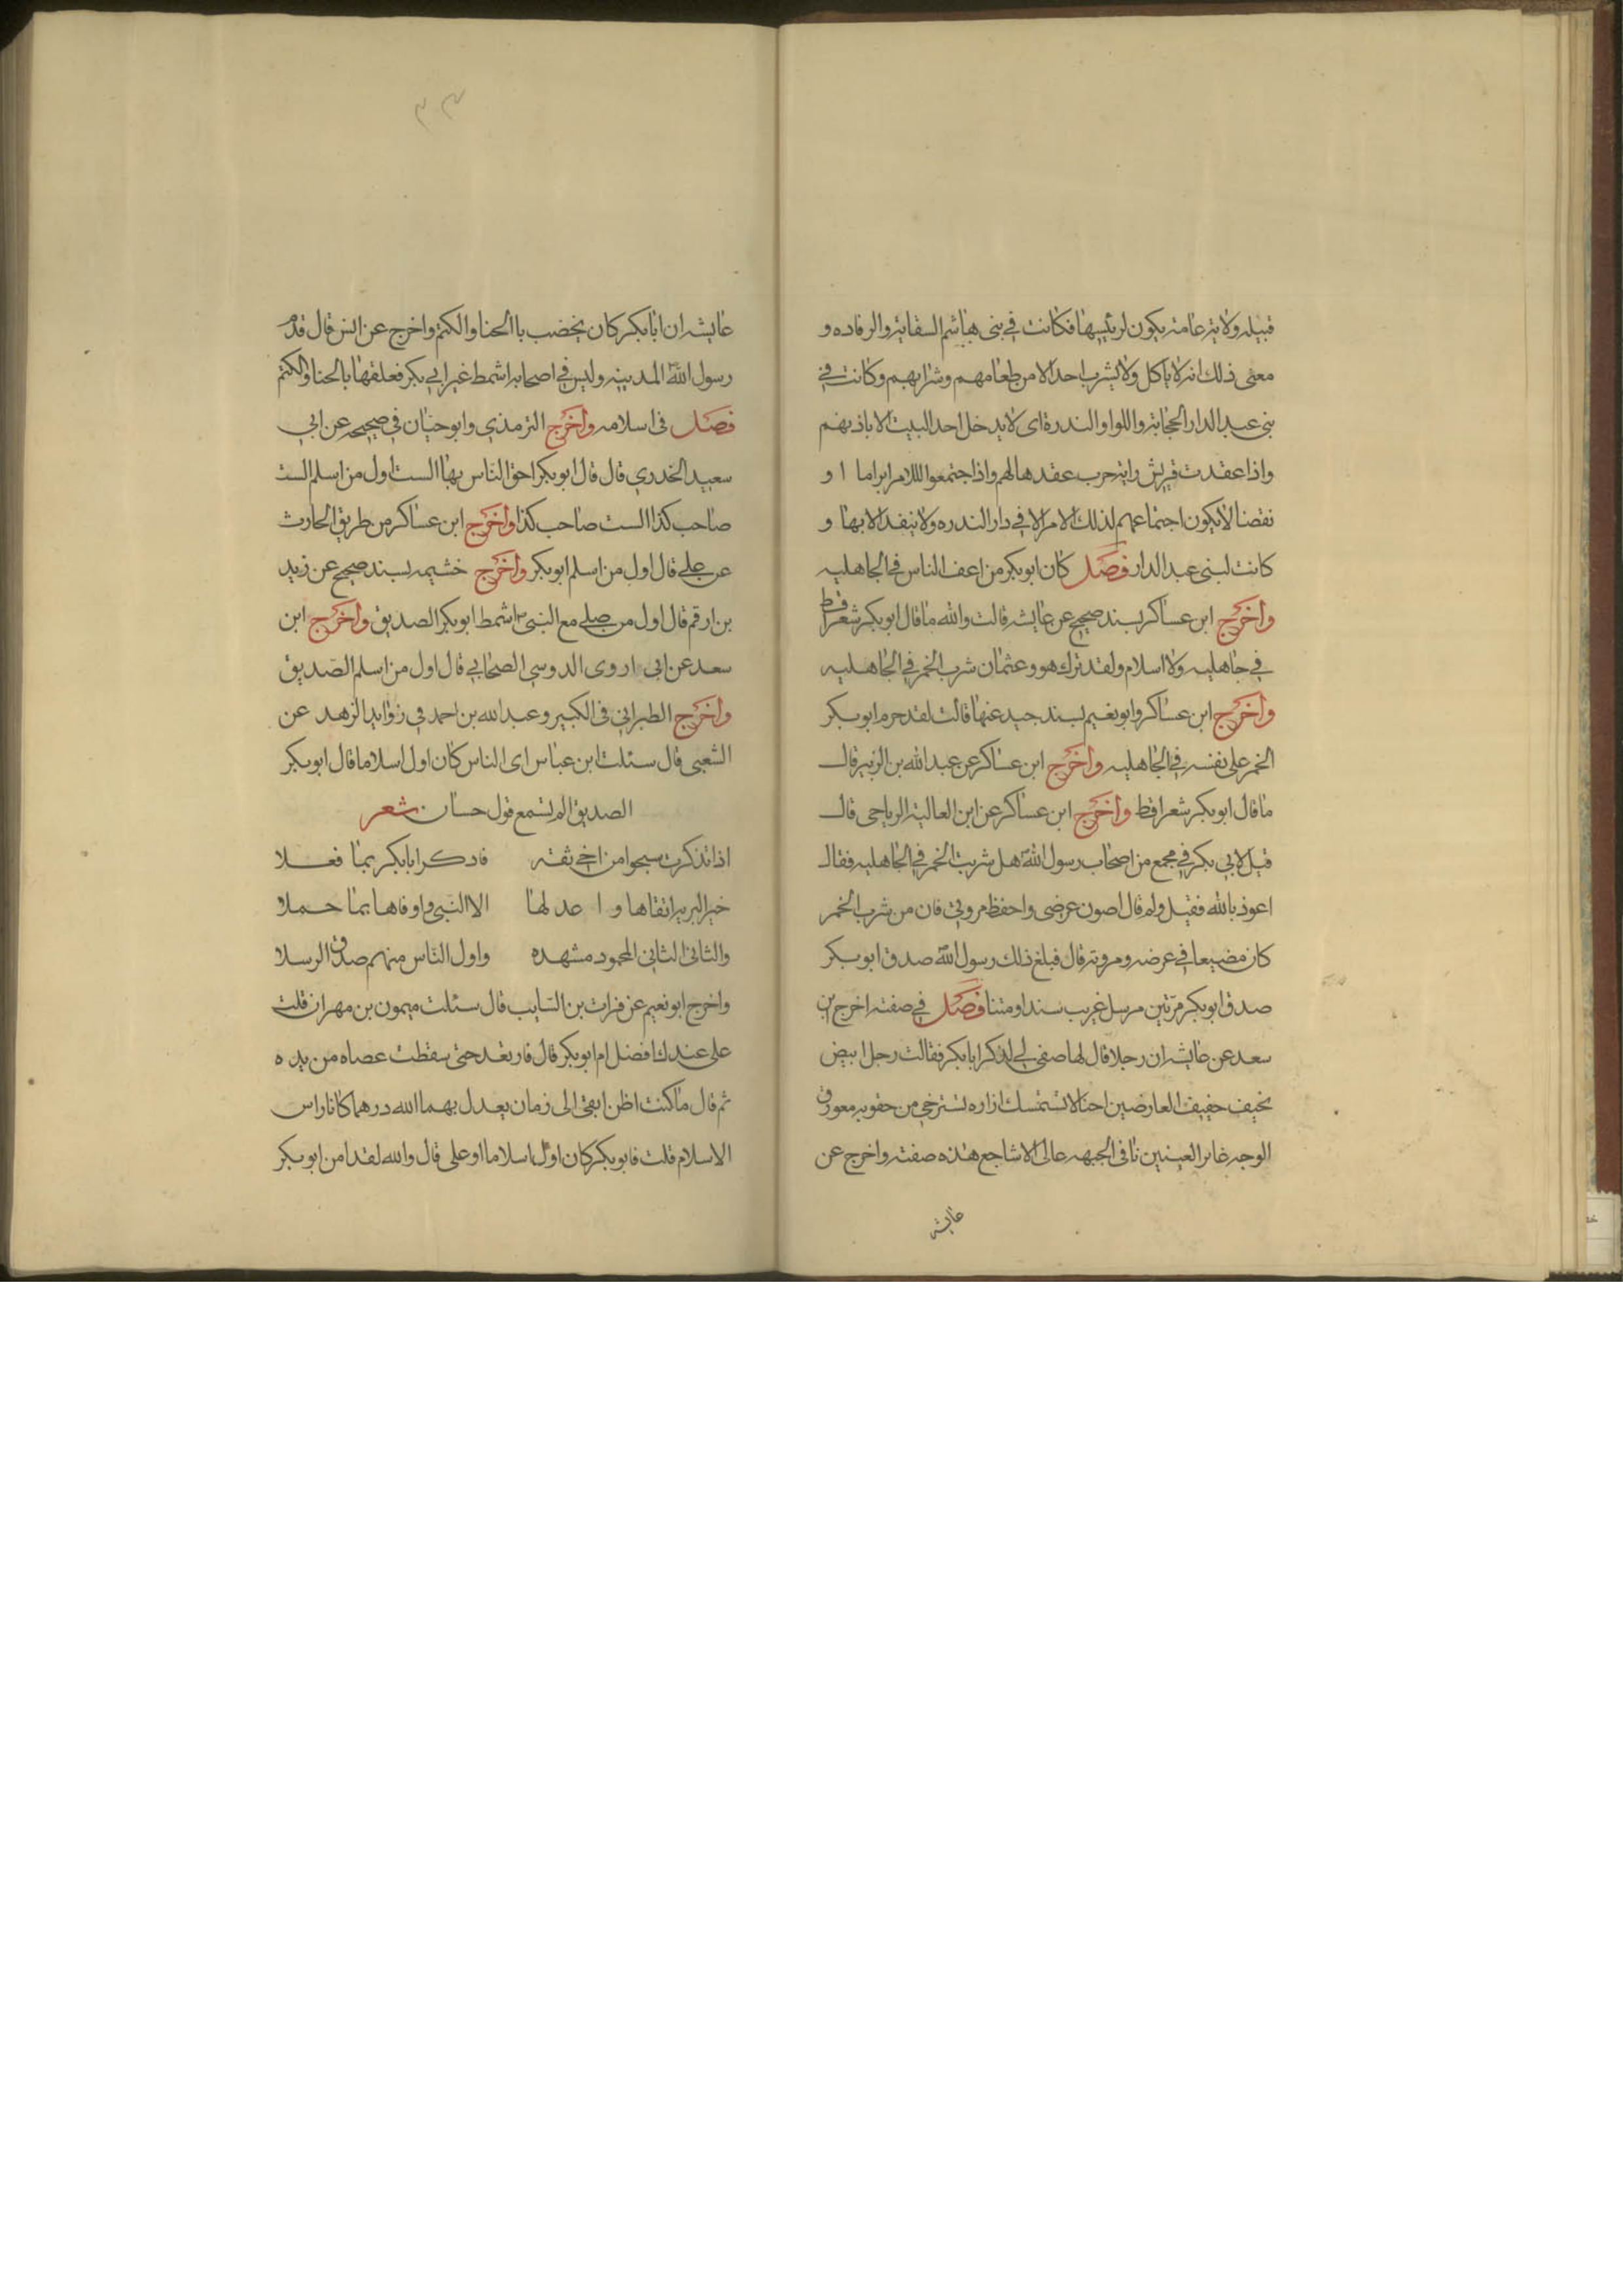 قبيله ولاية عامة يكون لرئيسها فكانت في بني هاشم السقاية والرفاده و
معنى ذلك انه لا ياكل ولا يشرب احد الا من طعامهم وشرابهم وكانت في
بني عبد الدار الحجابة واللوا والندرة اى لا يدخل احد البيت الا باذنهم
واذا عقدت قريش راية حرب عقدها لهم واذا اجتمعوا اللامر ابراما ا و
نقضا لا يكون اجتماعهم لذلك الامر الا في دار الندره ولا ينفد الا بها و
كانت لبنى عبد الدار فصل كان ابو بكر من اعف الناس في الجاهليه
واخرج ابن عساكر بسند صحيح عن عايشه قالت والله ما قال ابو بكر شعرا قط
في جاهليه ولا اسلام ولقد ترك هو وعثمان شرب الخمر في الجاهليه
واخرج ابن عساكر وابو نعيم بسند جيد عنها قالت لقد حرم ابو بكر
الخمر على نفسه في الجاهليه واخرج ابن عساكر عن عبد الله بن الزبير قال
ما قال ابو بكر شعرا قط واخرج ابن عساكر عن ابن العالية الرياحى قال
قيل لابي بكر في مجمع من اصحاب رسول الله هل شربت الخمر في الجاهليه فقال
اعوذ بالله فقيل ولم قال اصون عرضى واحفظ مروتي فان من شرب الخمر
كان مضيعا في عرضه ومروته قال فبلغ ذلك رسول الله صدق ابو بكر
صدق ابو بكر مرتين مرسل غريب سندا ومتنا فصل في صفته اخرج بن
سعد عن عايشه ان رجلا قال لها صفى لي ابا بكر فقالت رجل ابيض
نحيف خفيف العارضين احنا لا تستمسك ازاره تسترخى من حقويه معروق
الوجه غاير العينين ناتى الجبهه عالى الاشاجع هذه صفته واخرج عن
عايشه
٣٣
عايشه ان ابا بكر كان يخضب با الحنا والكتم واخرج عن انس قال قدم
رسول الله المدينه وليس في اصحابه اشمط غير ابي بكر فعلقها بالحنا والكتم
فصل في اسلامه واخرج الترمذي وابو حبان في صحيحه عن ابي
سعيد الخدري قال قال ابو بكر احق الناس بها الست اول من اسلم الست
صاحب كذا الست صاحب كذا واخرج ابن عساكر من طريق الحارث
عن على قال اول من اسلم ابو بكر واخرج خشيمه بسند صحيح عن زيد
بن ارقم قال اول من صلى مع النبى اشمط ابو بكر الصديق واخرج ابن
سعد عن ابي اروى الدوسي الصحابي قال اول من اسلم الصديق
واخرج الطبراني في الكبير وعبد الله بن احمد في زوايد الزهد عن
الشعبى قال سئلت ابن عباس اى الناس كان اول اسلاما قال ابو بكر
الصديق الم تسمع قول حسان شعر
اذا تذكرت سجوا من اخي ثقه فاذكر ابا بكر بما فعلا
خير البريه اتقاها و ا عدلها الا النبي واوفاها بما حملا
والثانى الثانى المحمود مشهده واول الناس منهم صدق الرسلا
واخرج ابو نعيم عن فرات بن السايب قال سئلت ميمون بن مهران قلت
على عندك افضل ام ابو بكر قال فارتعد حتى سقطت عصاه من يده
ثم قال ما كنت اظن ابقى الى زمان يعدل بهما الله درهما كانا راس
الاسلام قلت فابو بكر كان اول اسلاما او على قال والله لقد امن ابو بكر